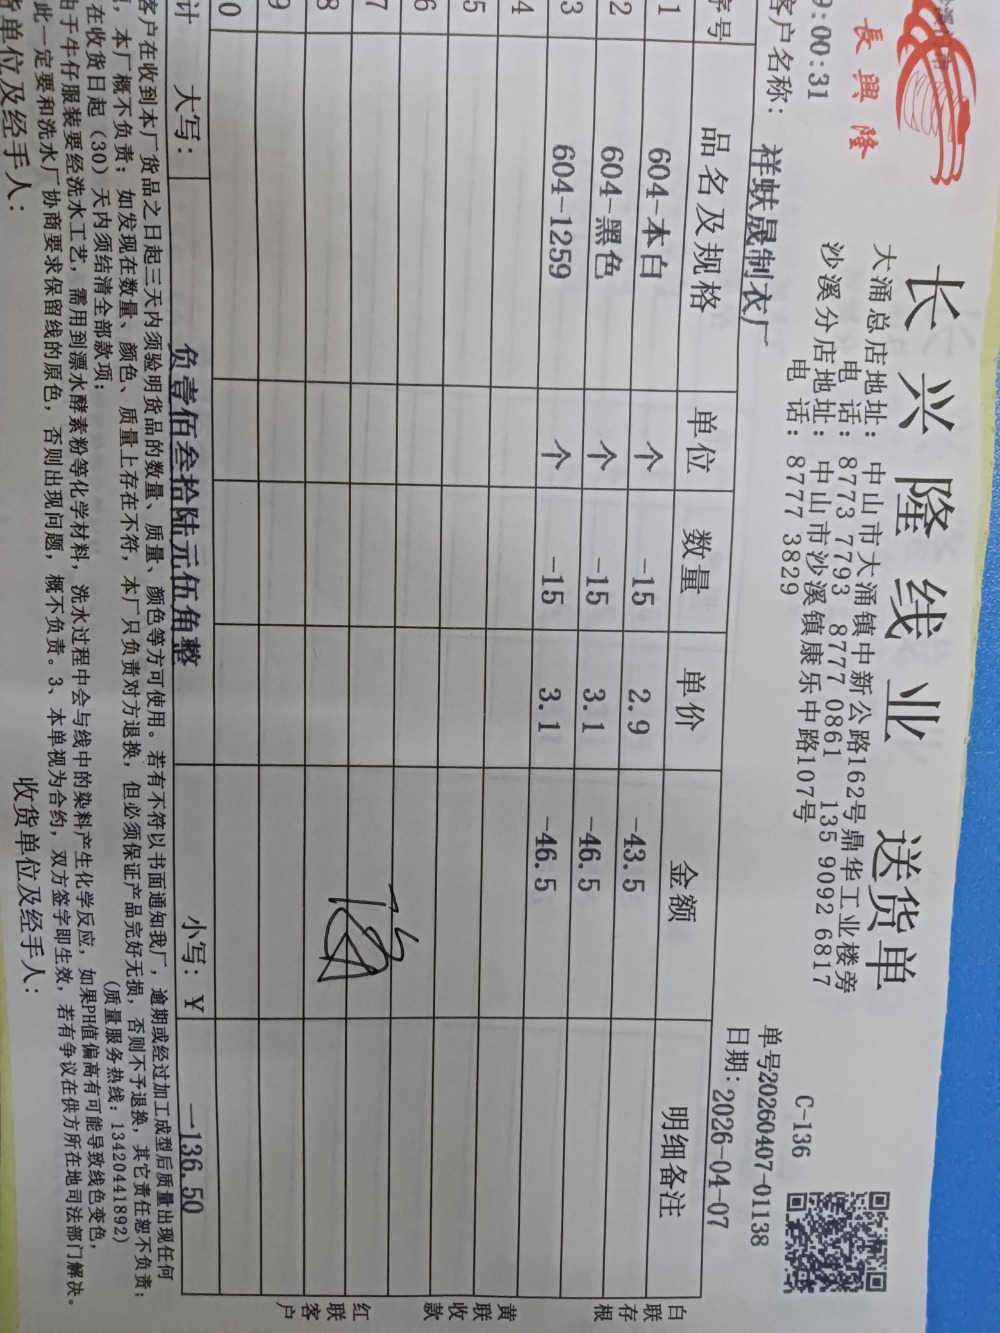 長興隆
长兴隆线业 送货单
大涌总店地址：中山市大涌镇中新公路162号鼎华工业楼旁
电 话：8773 7793 8777 0861 135 9092 6817
沙溪分店地址：中山市沙溪镇康乐中路107号
电 话：8777 3829
C-136
9:00:31
单号20260407-01138
客户名称：祥蚨晟制衣厂
日期：2026-04-07
序号 品名及规格 单位 数量 单价 金额 明细备注
1 604-本白 个 -15 2.9 -43.5
2 604-黑色 个 -15 3.1 -46.5
3 604-1259 个 -15 3.1 -46.5
4
5
6
7
8
9
0
计 大写：负壹佰叁拾陆元伍角整 小写：￥ —136.50
客户在收到本厂货品之日起三天内须验明货品的数量、质量、颜色等方可使用。若有不符以书面通知我厂，逾期或经过加工成型后质量出现任何
，本厂概不负责；如发现在数量、颜色、质量上存在不符，本厂只负责对方退换，但必须保证产品完好无损，否则不予退换，其它责任恕不负责；
在收货日起（30）天内须结清全部款项； （质量服务热线：13420441892）
由于牛仔服装要经洗水工艺，需用到漂水酵素粉等化学材料，洗水过程中会与线中的染料产生化学反应，如果PH值偏高有可能导致线色变色，
此一定要和洗水厂协商要求保留线的原色，否则出现问题，概不负责。3、本单视为合约，双方签字即生效，若有争议在供方所在地司法部门解决。
货单位及经手人： 收货单位及经手人：
白联存根
黄联收款
红联客户